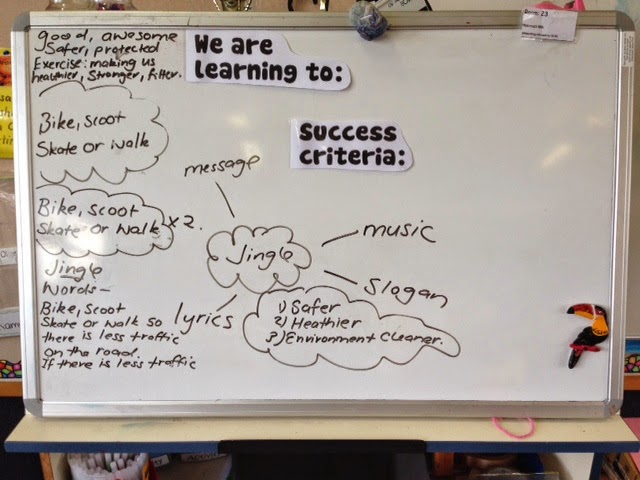 good, awesome
Safer, protected
Exercise: making us
healthier, Stronger, fitter.
We are
learning to:
Bike, scoot
Skate or walk
Success
criteria:
message
Bike, scoot
Skate or walk x 2.
Jingle
music
slogan
lyrics
1) Safer
2) Heathier
3) Environment cleaner.
Jingle
Words-
Bike, scoot
Skate or walk so
there is less traffic
on the road.
If there is less traffic
Room: 23